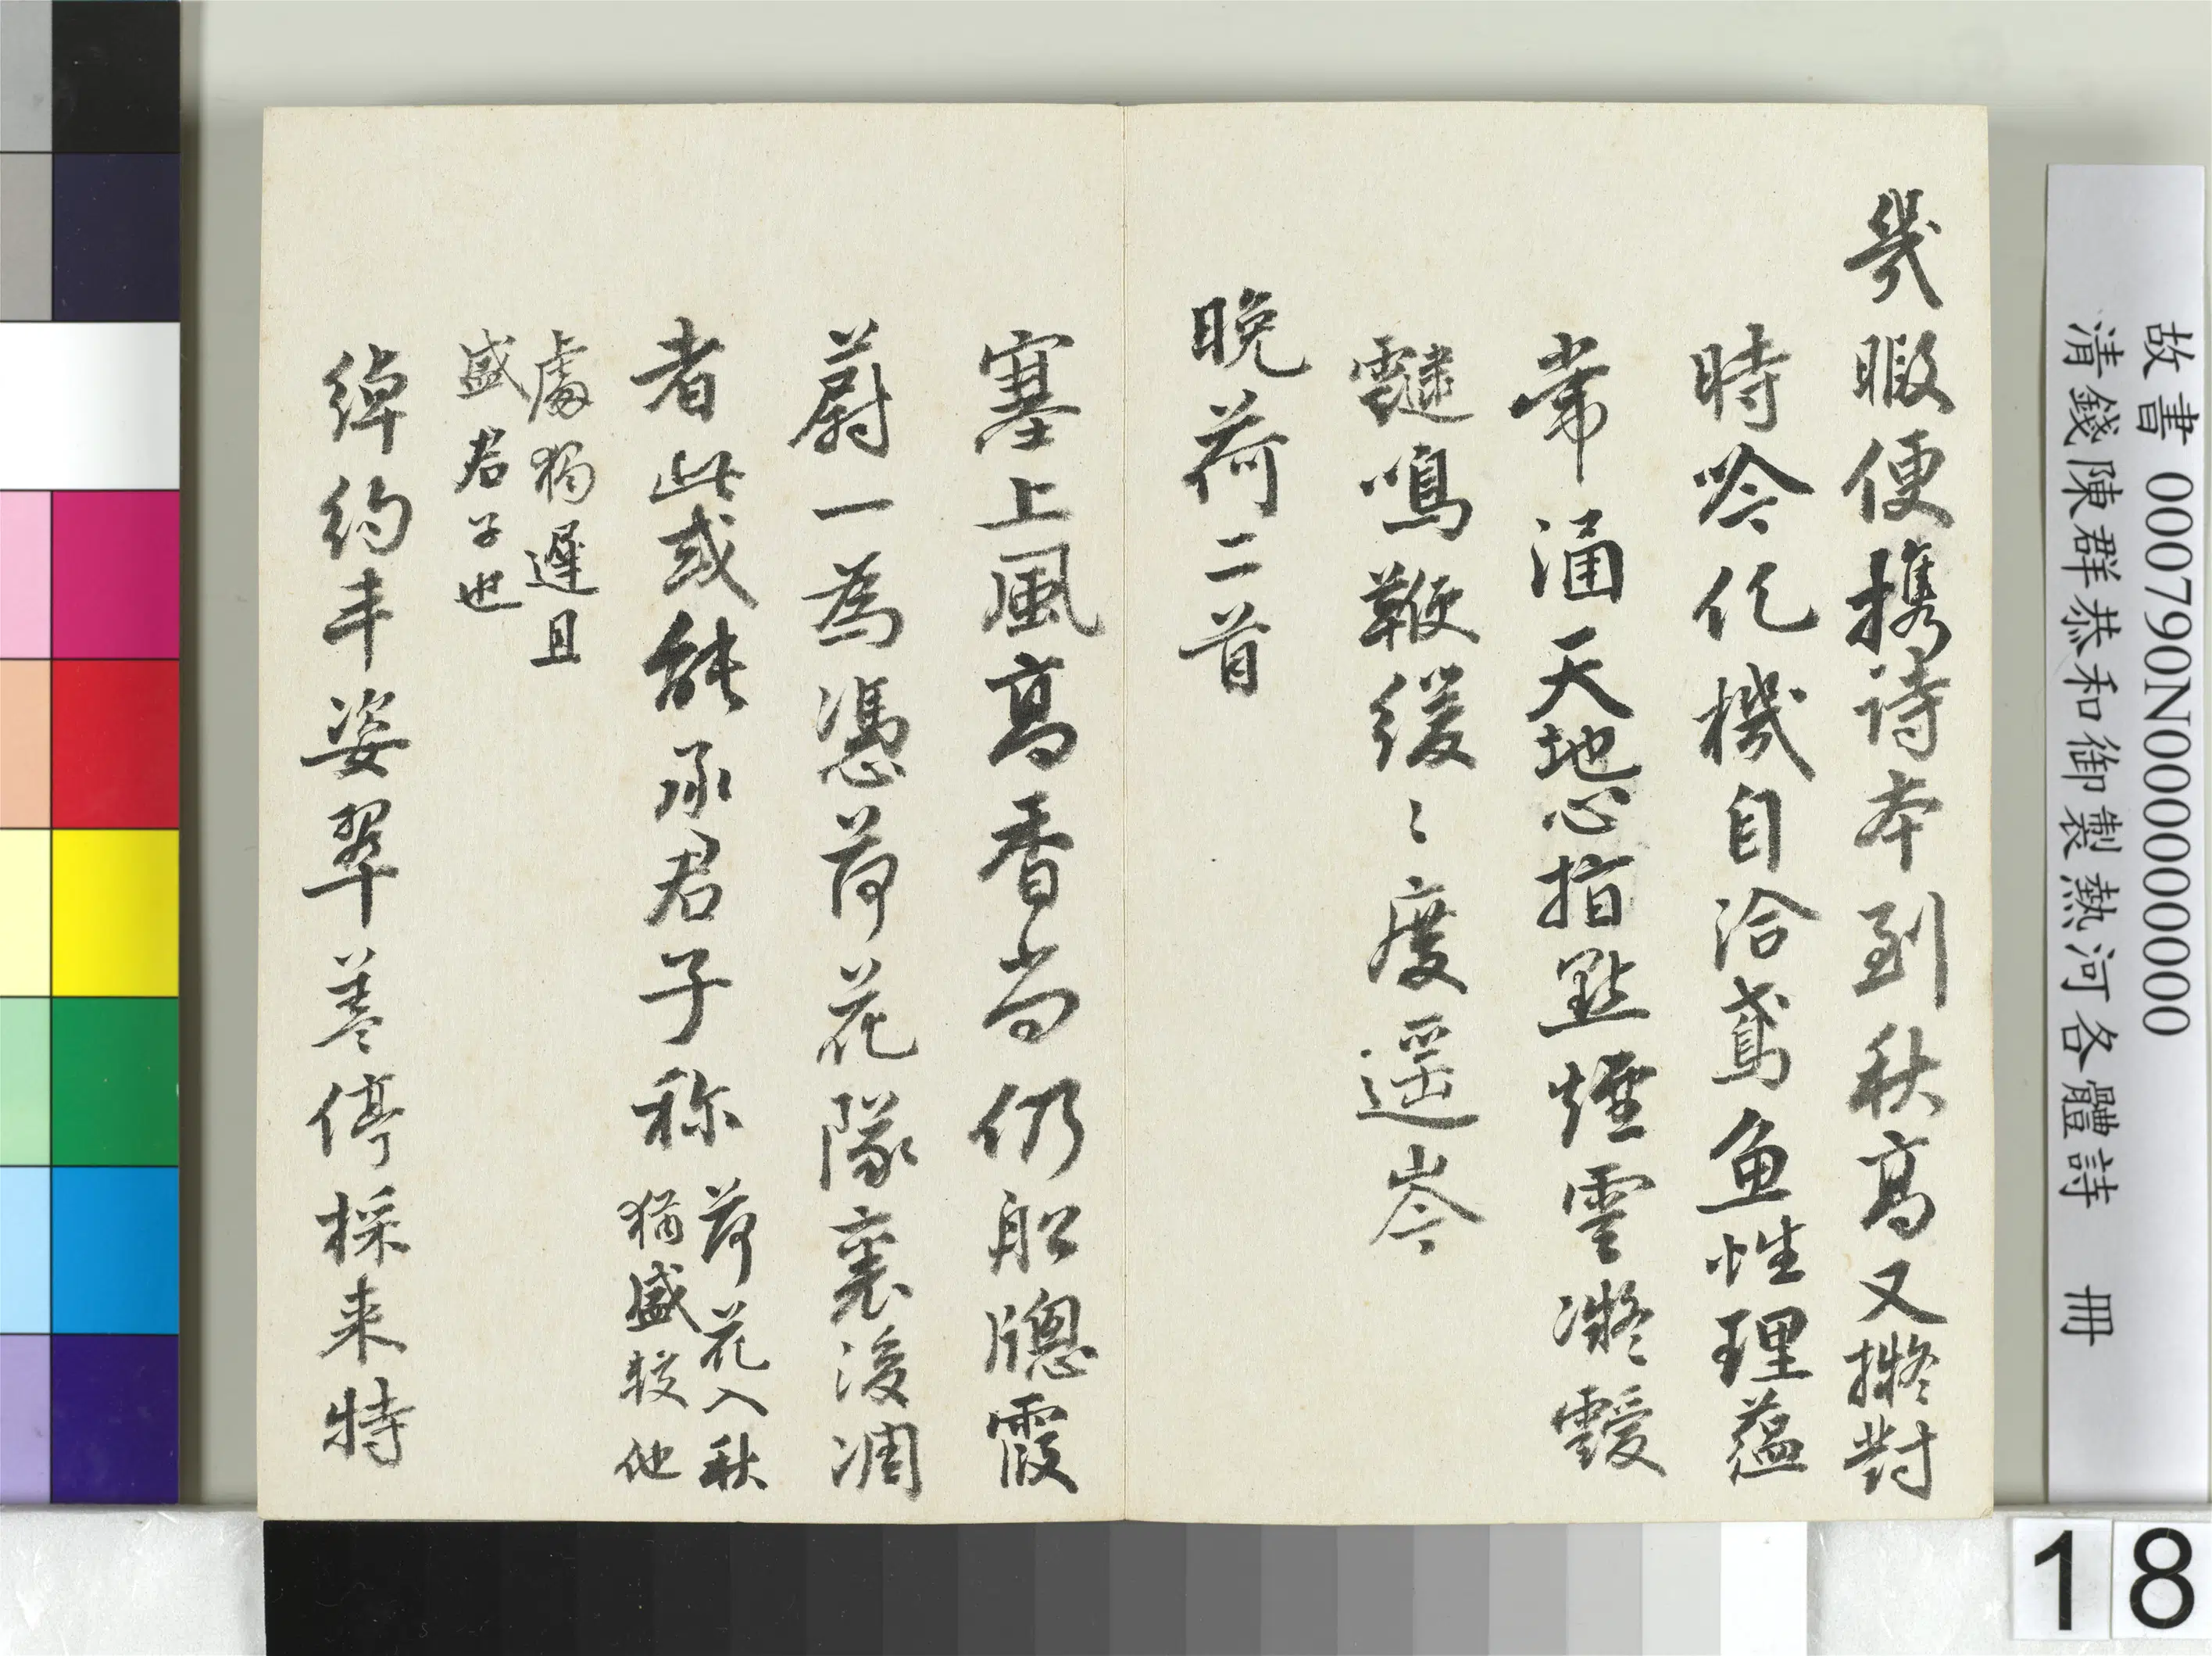 幾暇便攜詩本到秋高又擬對
時吟化機自洽鳶魚性理蘊
常涵天地心指點煙雲凝靉
靆鳴鞭緩〻度遥岑
晚荷二首
塞上風高香尚仍船牕霞
蔚一為憑荷花隊裏後凋
者此或能承君子称荷花入秋
猶盛較他
處獨遲且
盛君子也
綽約丰姿翠葢停採来特
故書 000790N000000000
清錢陳群恭和御製熱河各體詩 冊
18